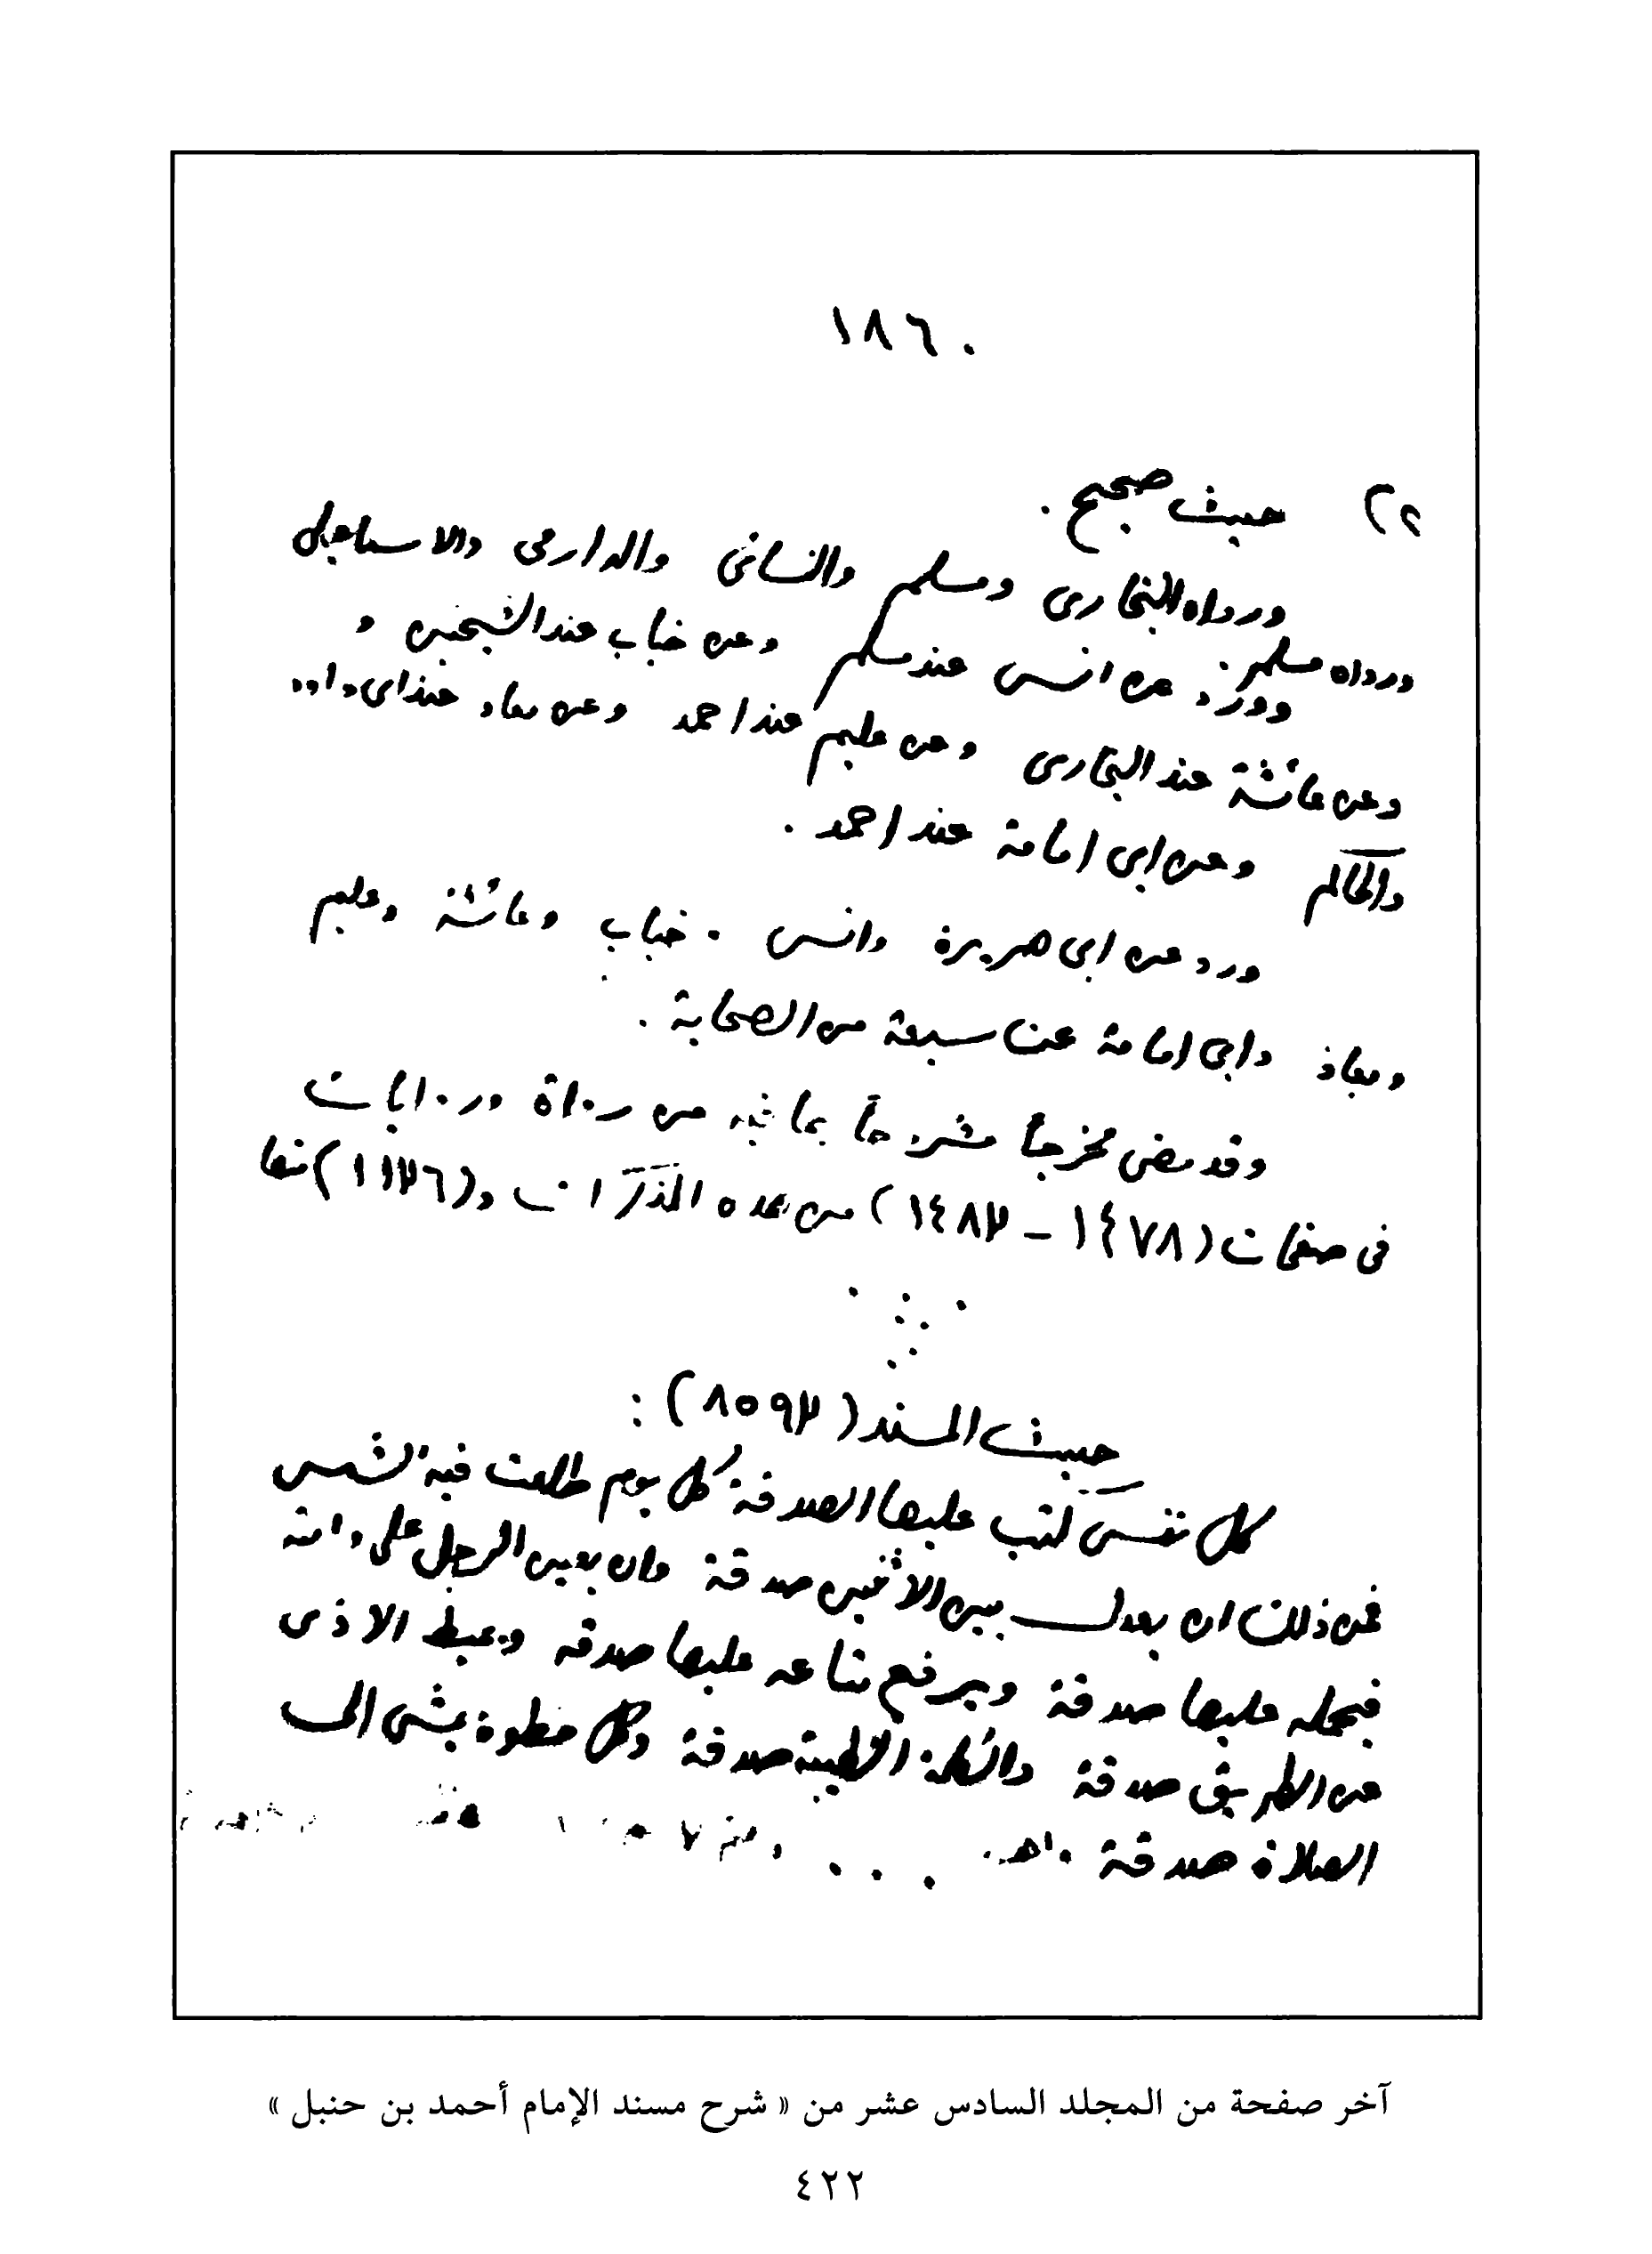 ١٨٦٠
٢٢ حديث صحيح .
ورواه البخارى ومسلم والنسائى والدارمى والاسماعيلى
ورواه مسلم . وورد عن انس عند مسلم وعن خباب عند الشيخين و
وعن عائشة عند البخارى وعن عليم عند احمد وعن معاذ عند ابى داود
والحاكم وعن ابى امامة عند احمد .
ورد عن ابى هريرة وانس . خباب وعائشة وعليم
ومعاذ وابى امامة عن سبعة من الصحابة .
وقد مضى مخرجاً مشروحاً بما فيه من رواة وروايات
فى صفحات (١٤٧٨ – ١٤٨٣) من هذه المذكرات و(١١٣٦)
حديث المسند (٨٥٩٣) :
كل نفس كتب عليها الصدقة كل يوم طلعت فيه الشمس
فمن ذلك ان يعدل بين الاثنين صدقة وان يعين الرجل على دابته
فيحمله عليها صدقة ويرفع متاعه عليها صدقة ويميط الاذى
عن الطريق صدقة والكلمة الطيبة صدقة وكل خطوة يمشى الى
الصلاة صدقة . اهـ . . . .
آخر صفحة من المجلد السادس عشر من « شرح مسند الإمام أحمد بن حنبل »
٤٢٢